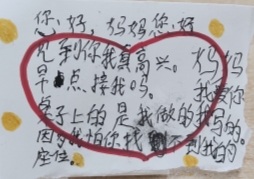 您，好，妈妈您，好
见到你我真高兴。妈妈
早点接我吗。我爱你
桌子上的是我做的我写的。
因为我怕你找到不到我的
座位。